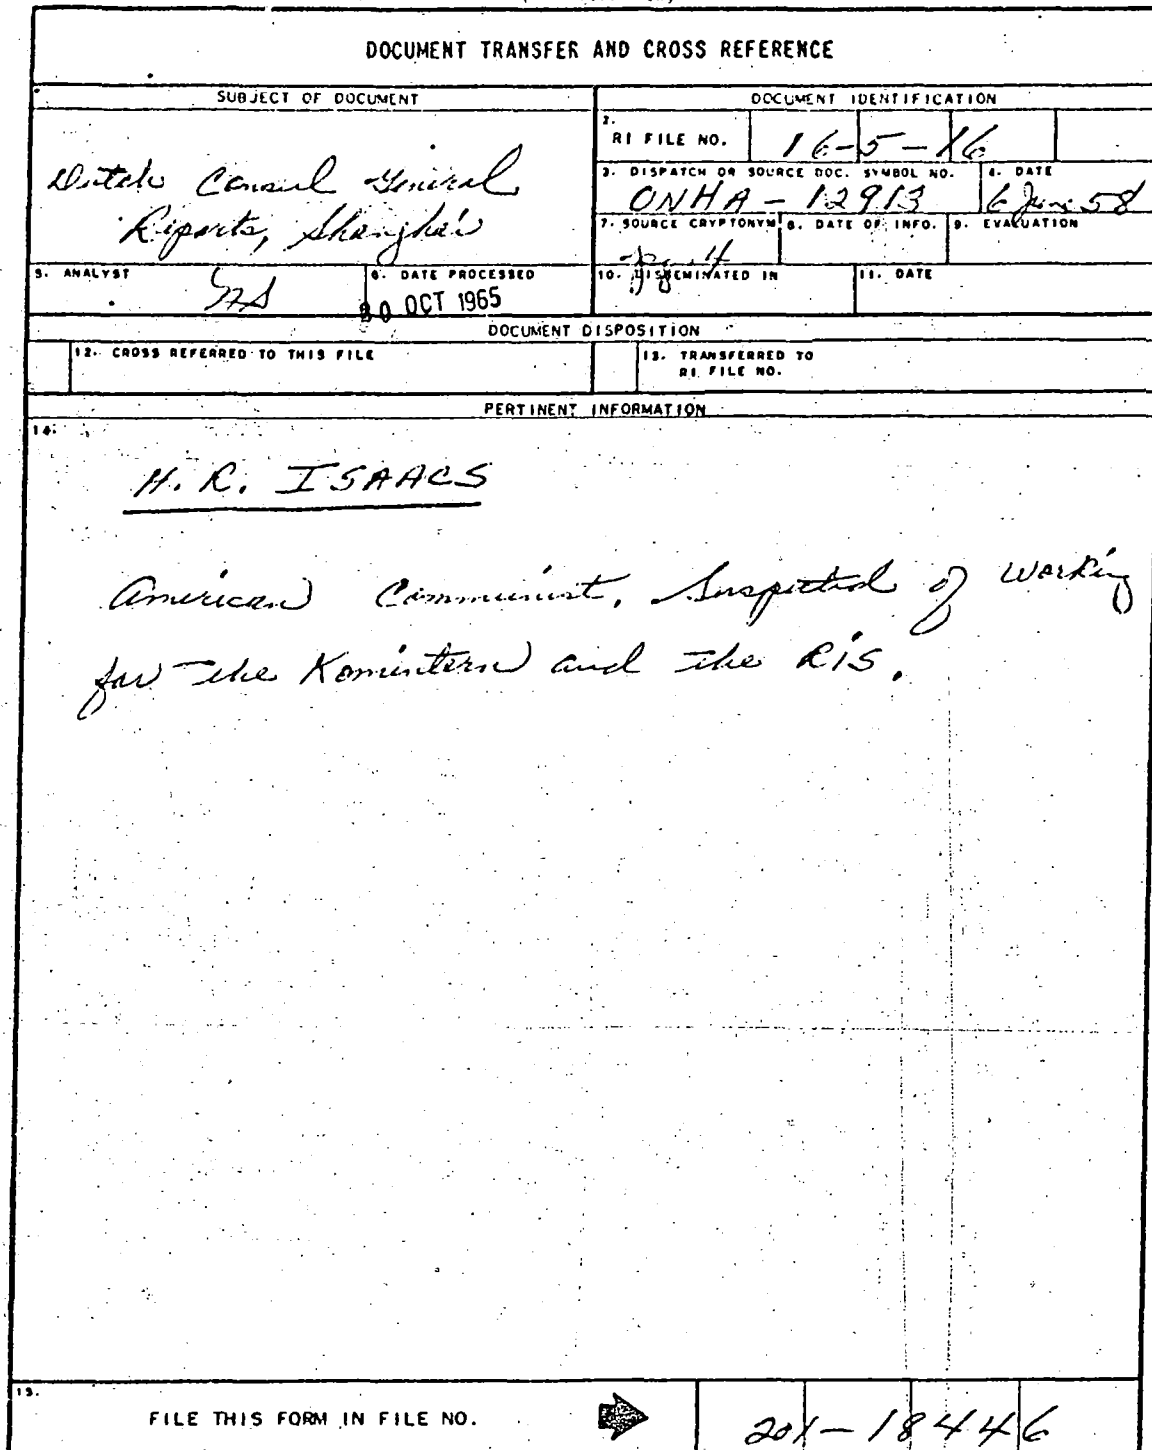 DOCUMENT TRANSFER AND CROSS REFERENCE
SUBJECT OF DOCUMENT
DOCUMENT IDENTIFICATION
Dutch Consul General
Reports, Shanghai
2. RI FILE NO. 16-5-16
3. DISPATCH OR SOURCE DOC. SYMBOL NO. 4. DATE
ONHA-12913 6 June 58
7. SOURCE CRYPTONYM 8. DATE OF INFO. 9. EVALUATION
5. ANALYST 6. DATE PROCESSED
30 OCT 1965
10. DISSEMINATED IN 11. DATE
DOCUMENT DISPOSITION
12. CROSS REFERRED TO THIS FILE
13. TRANSFERRED TO
RI FILE NO.
PERTINENT INFORMATION
14.
H. R. ISAACS
American Communist, Suspected of working
for the Komintern and the RIS.
15.
FILE THIS FORM IN FILE NO.
201-18446